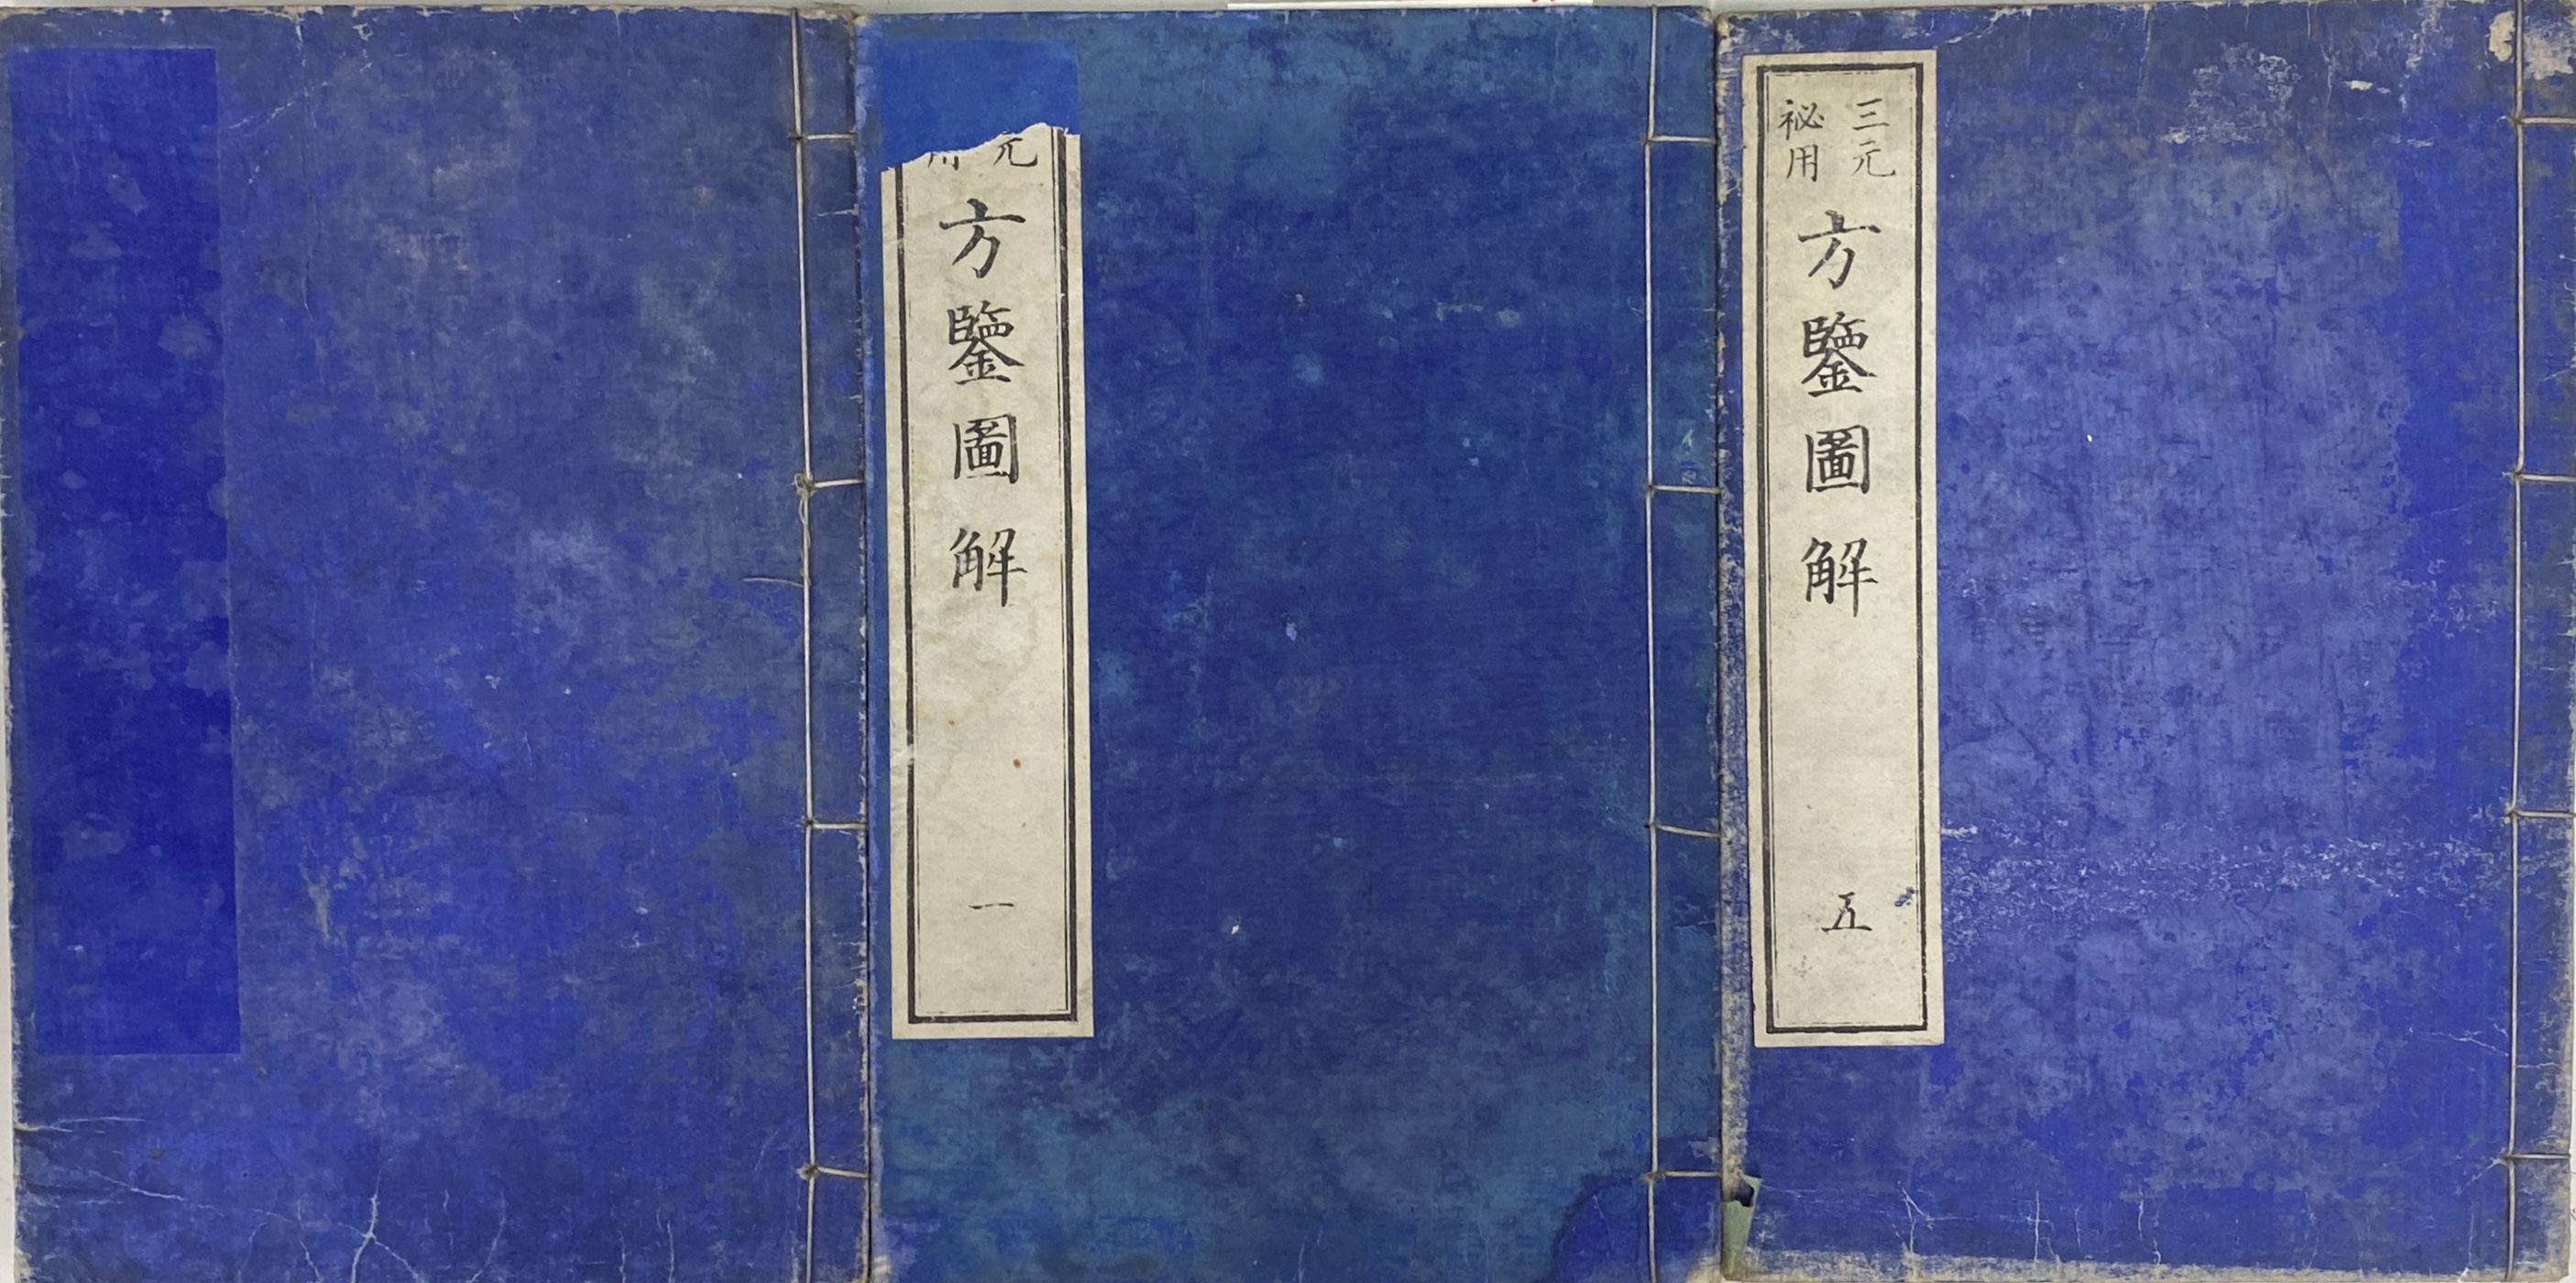 三元
祕用
方鑒圖解
五
元
用
方鑒圖解
一